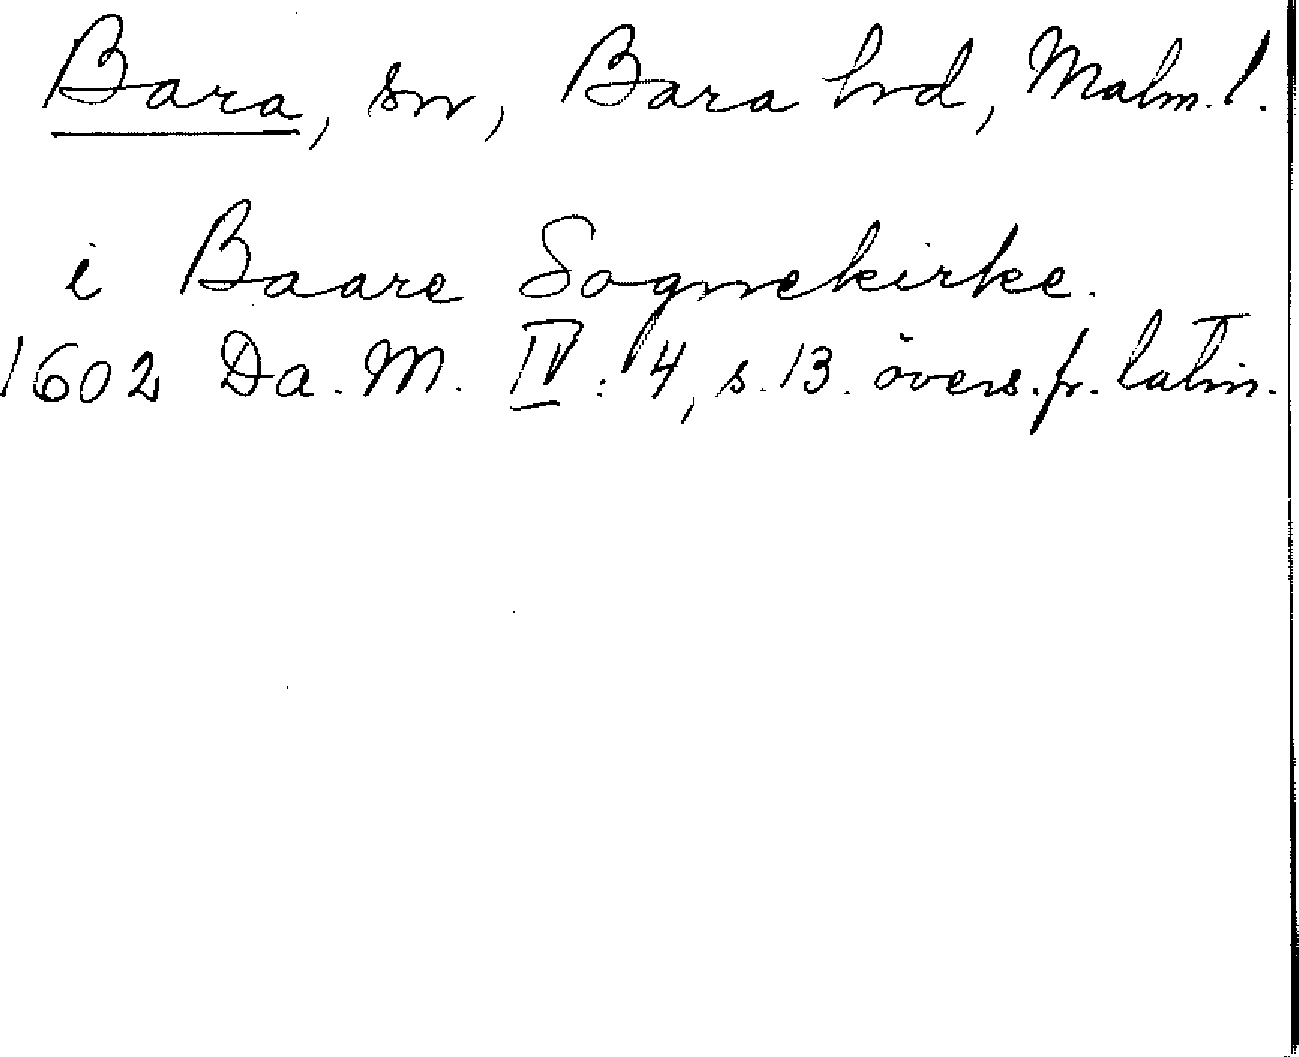 Bara, sn, Bara hrd, Malm. l.
i Baare Sognekirke.
1602 Da. M. IV: 4, s. 13. övers. fr. latin.